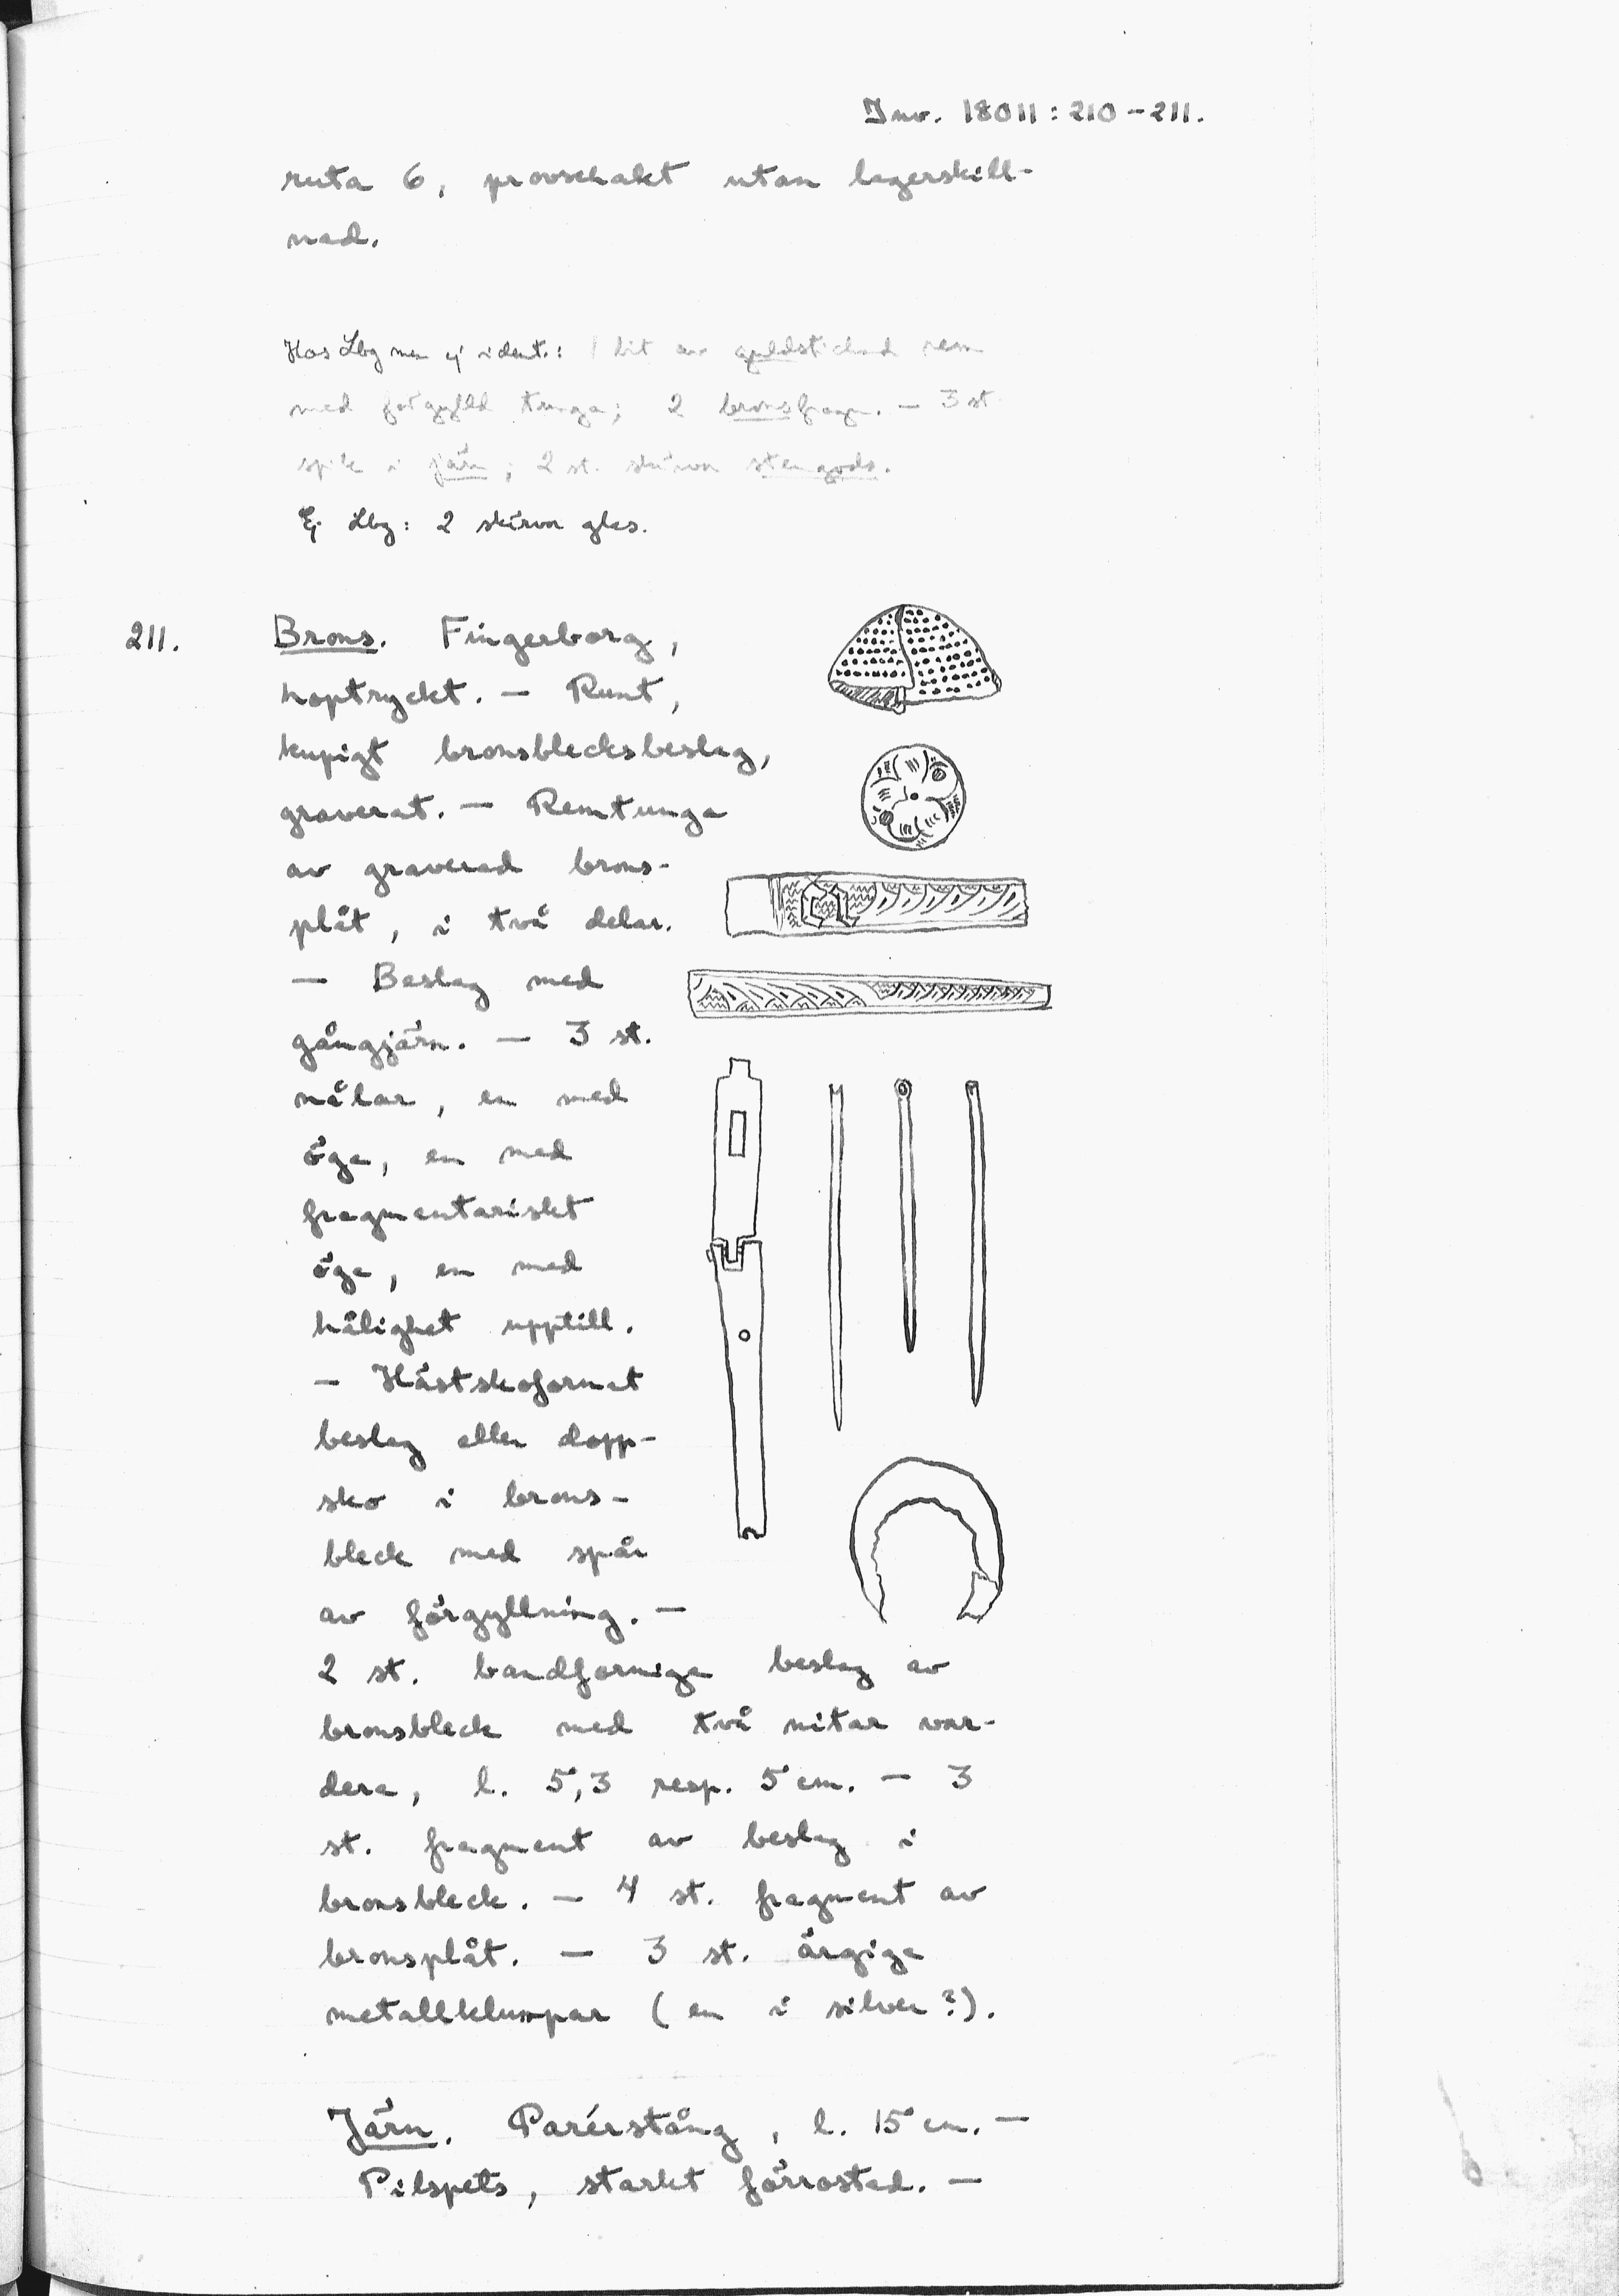 Inv. 18011:210-211.
ruta 6, provschakt utan lagerskill-
nad.
Hos Lbg men ej ident.: 1 bit av guldstickad rem
med förgylld tunga; 2 bronsfragm. — 3 st
spik i järn; 2 st. skärvor stengods.
Ej Lbg: 2 skärvor glas.
211. Brons. Fingerborg,
hoptryckt. — Runt,
kupigt bronsblecksbeslag,
graverat. — Remtunga
av graverad brons-
plåt, i två delar.
— Beslag med
gångjärn. — 3 st.
nålar, en med
öga, en med
fragmentariskt
öga, en med
hålighet upptill.
— Hästskoformat
beslag eller dopp-
sko i brons-
bleck med spår
av förgyllning. —
2 st. bandformiga beslag av
bronsbleck med två nitar var-
dera, l. 5,3 resp. 5 cm. — 3
st. fragment av beslag i
bronsbleck. — 4 st. fragment av
bronsplåt. — 3 st. ärgiga
metallklumpar (en i silver?).
Järn. Parérstång, l. 15 cm. —
Pilspets, starkt förrostad. —